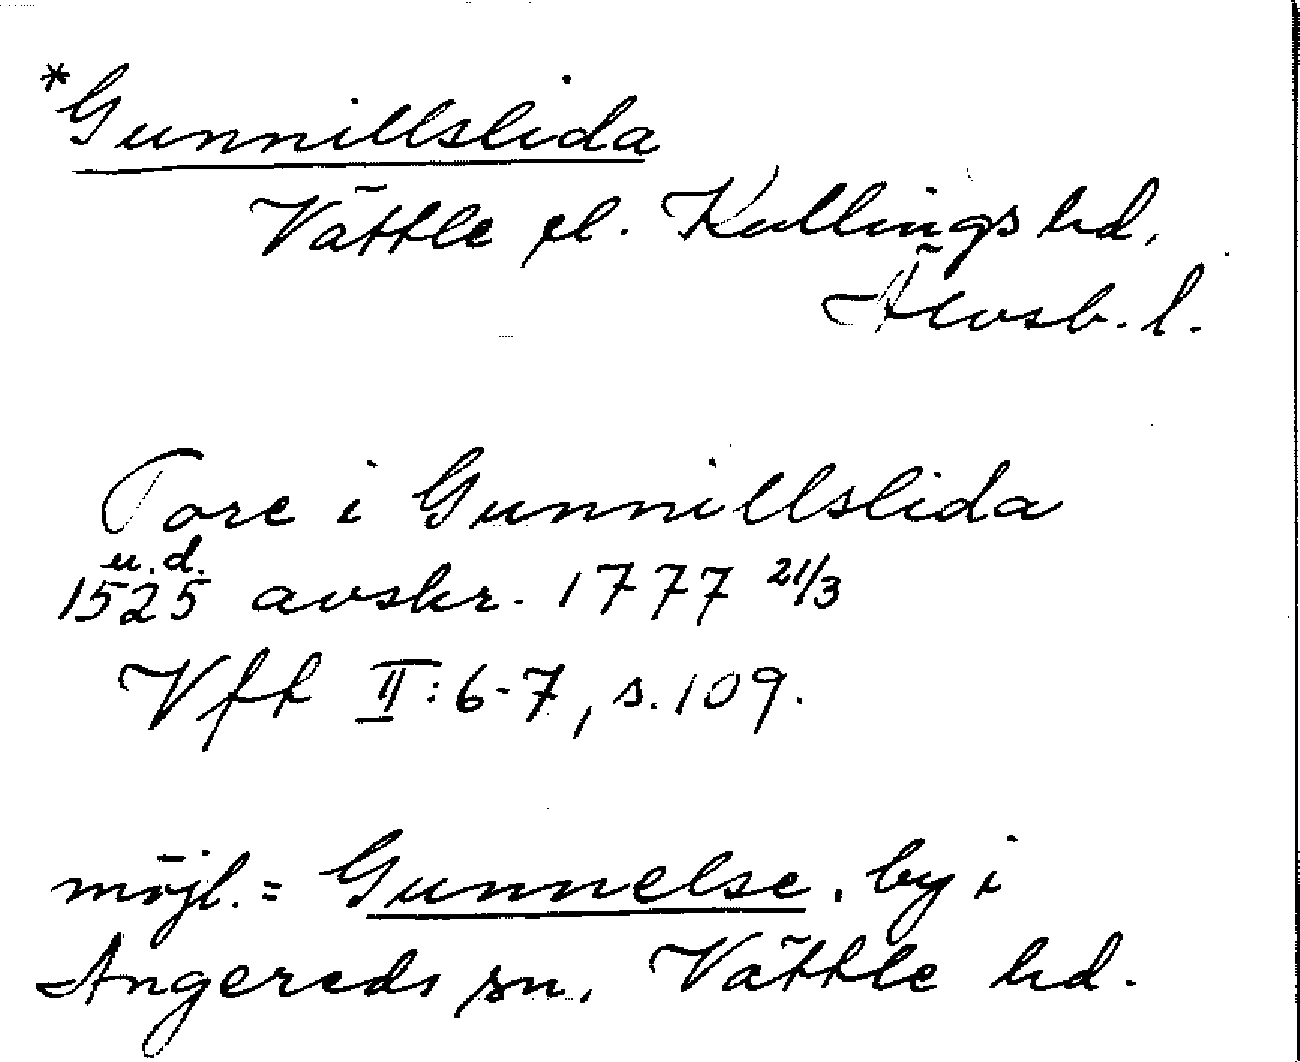 *Gunnillslida
Vättle el. Kullings hd,
Älvsb. l.
Tore i Gunnillslida
u.d.
1525 avskr. 1777 21/3
Vff II:6-7, s.109.
möjl. = Gunnelse, by i
Angereds sn, Vättle hd.